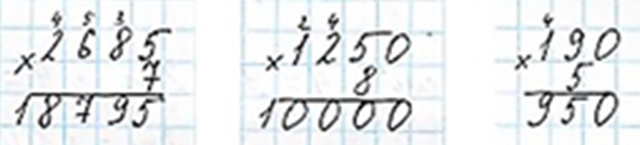 4 5 3
×2685
7
18795
2 4
×1250
8
10000
4
×190
5
950